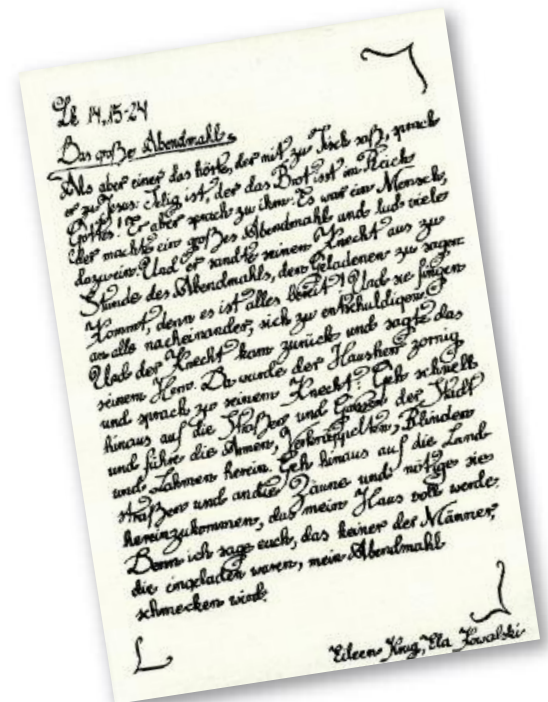 Lk 14,15-24
Das große Abendmahl
Als aber einer das hörte, der mit zu Tisch saß, sprach
er zu Jesus: Selig ist, der das Brot isst im Reich
Gottes! Er aber sprach zu ihm: Es war ein Mensch,
der machte ein großes Abendmahl und lud viele
dazu ein. Und er sandte seinen Knecht aus zu
Stunde des Abendmahls, den Geladenen zu sagen:
Kommt, denn es ist alles bereit! Und sie fingen
an alle nacheinander, sich zu entschuldigen.
Und der Knecht kam zurück und sagte das
seinem Herrn. Da wurde der Hausherr zornig
und sprach zu seinem Knecht: Geh schnell
hinaus auf die Straßen und Gassen der Stadt
und führe die Armen, Verkrüppelten, Blinden
und Lahmen herein. Geh hinaus auf die Land-
straßen und an die Zäune und nötige sie
hereinzukommen, das mein Haus voll werde.
Denn ich sage euch, das keiner der Männer,
die eingeladen waren, mein Abendmahl
schmecken wird.
Eileen Krug, Ela Kowalski